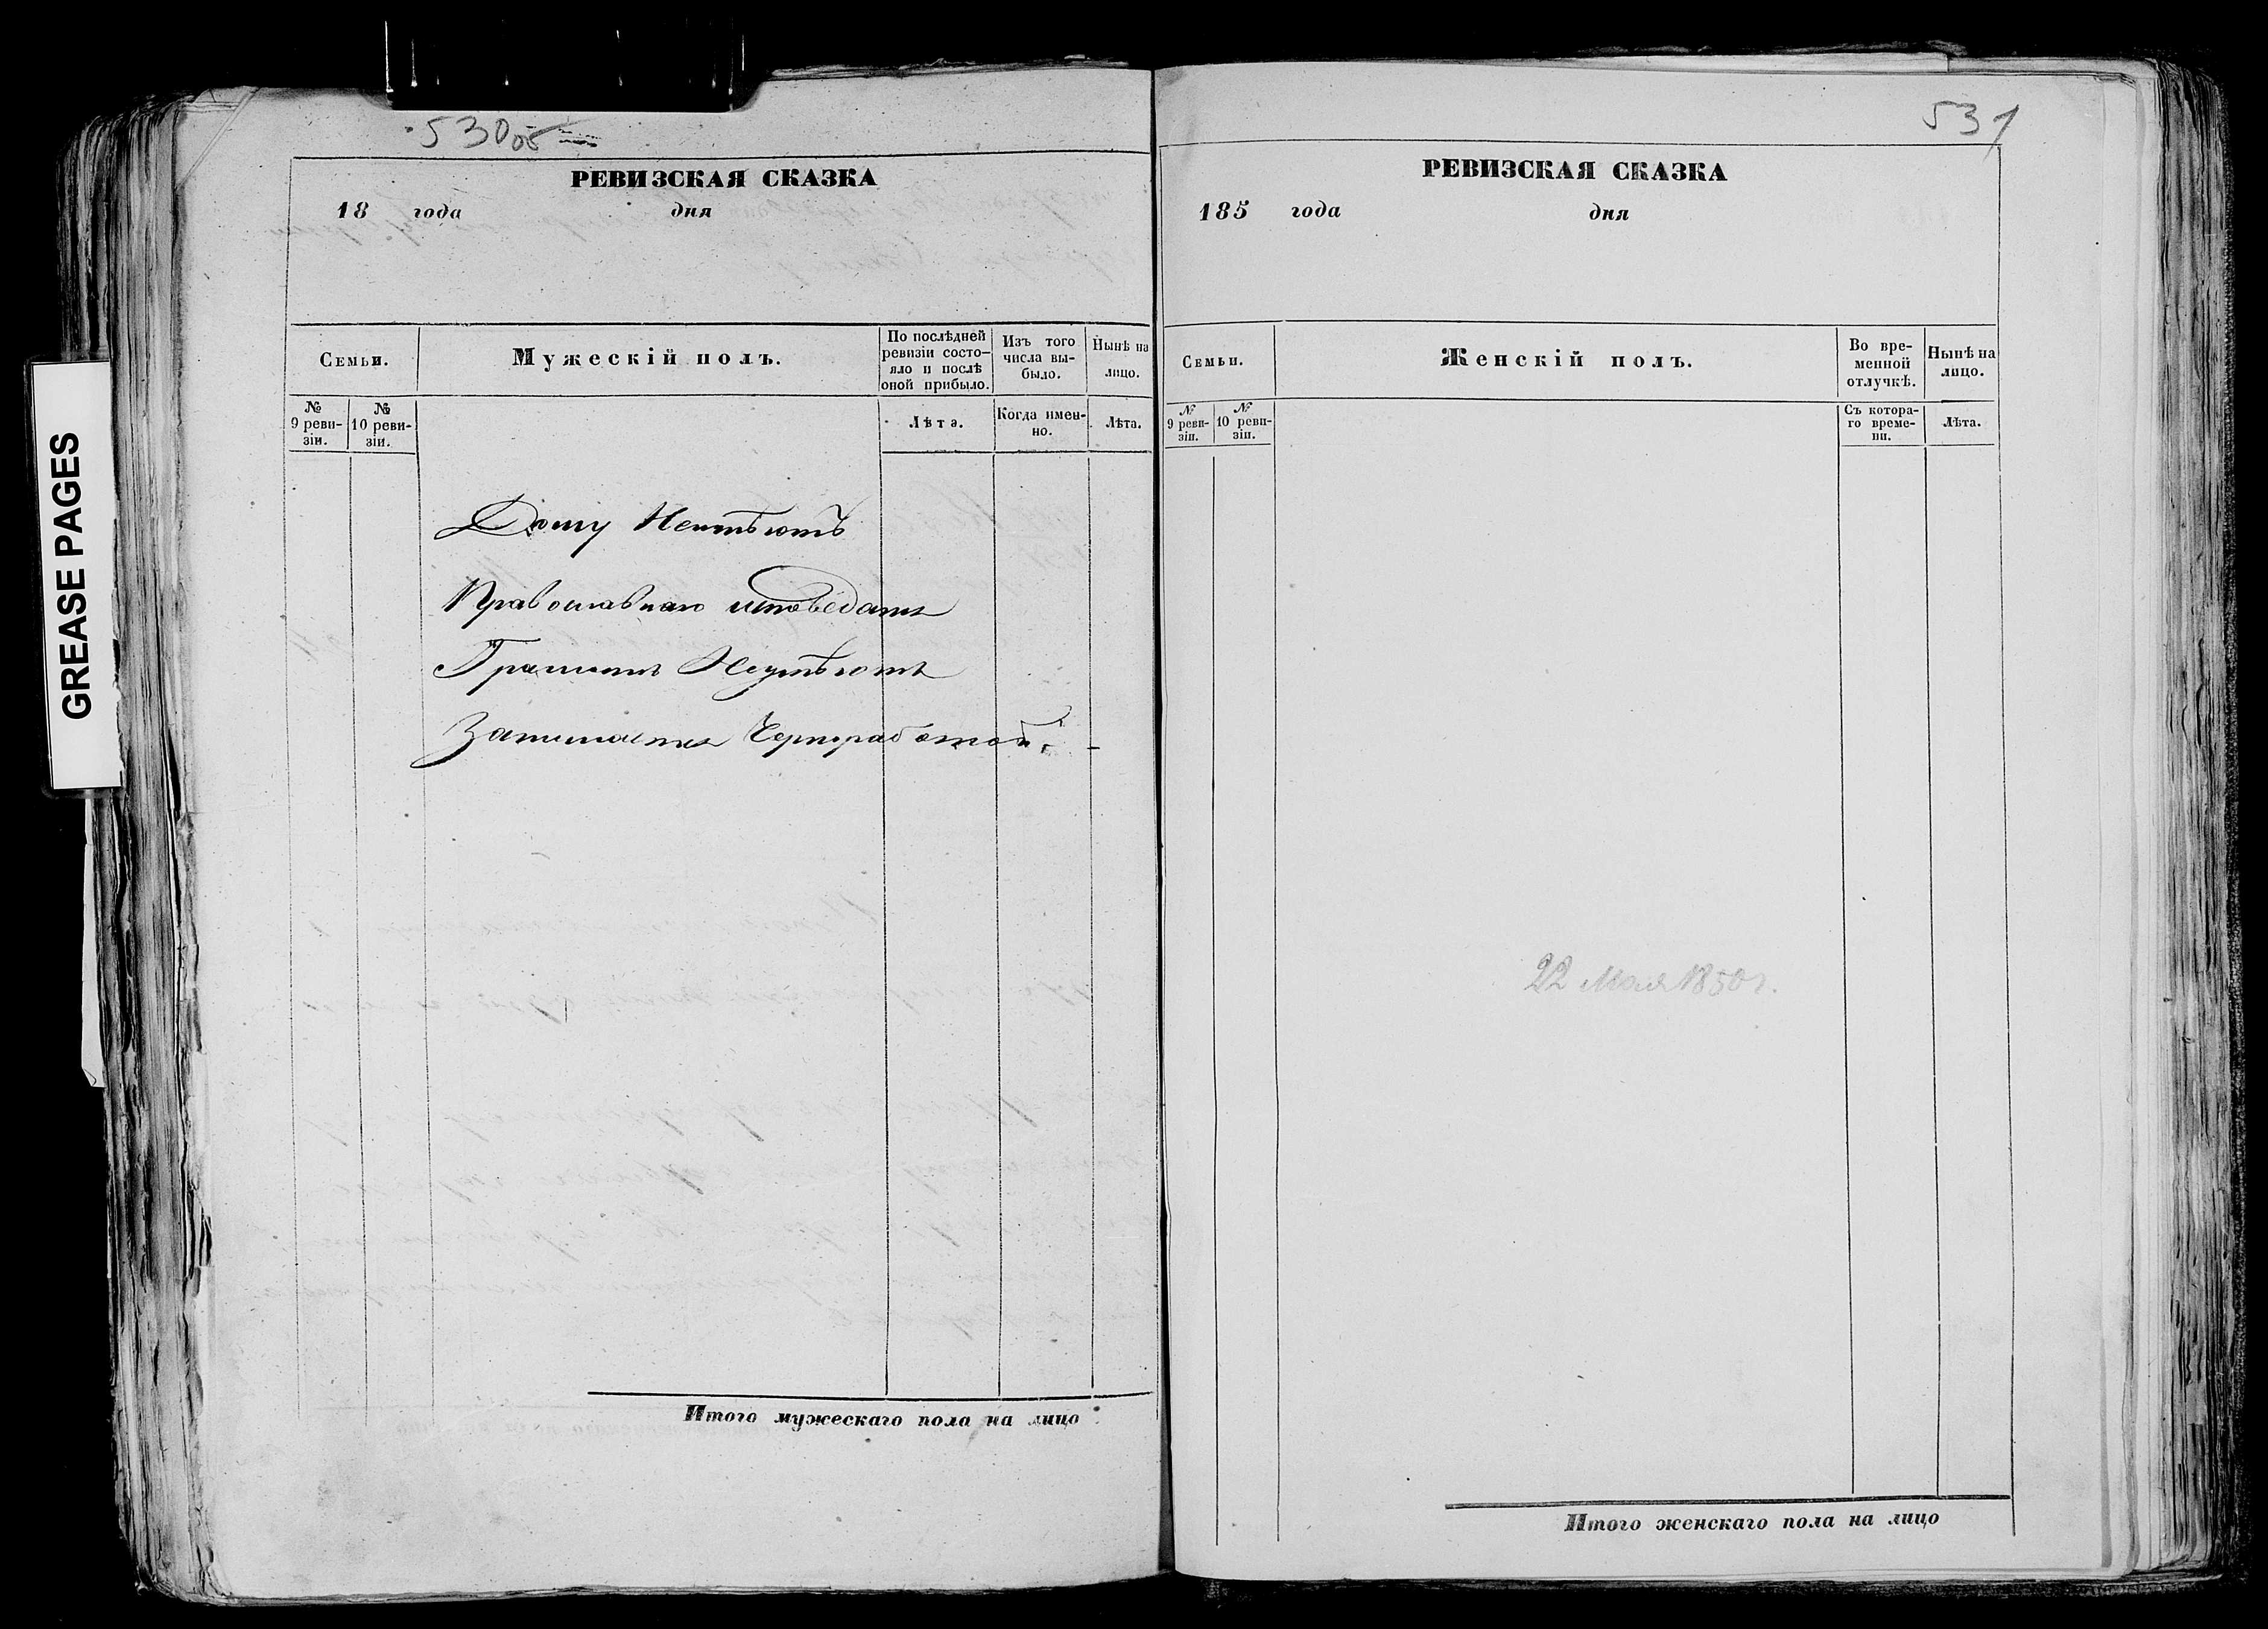 530 об
РЕВИЗСКАЯ СКАЗКА
18 года дня
Семьи.
Мужескій полъ.
По послѣдней ревизіи состо-
яло и послѣ
оной прибыло.
Изъ того
числа вы-
было.
Нынѣ на
лицо.
№
9 реви-
зіи.
№
10 реви-
зіи.
Лѣта.
Когда имен-
но.
Лѣта.
Дому Неимѣютъ
Православнаго исповѣдания
Грамотѣ Неумѣютъ
Занимается Черноработой
Итого мужескаго пола на лицо
531
РЕВИЗСКАЯ СКАЗКА
185 года дня
Семьи.
Женскій полъ.
Во вре-
менной
отлучкѣ.
Нынѣ на
лицо.
№
9 реви-
зіи.
№
10 реви-
зіи.
Съ котора-
го време-
ни.
Лѣта.
22 Мая 1850 г.
Итого женскаго пола на лицо
GREASE PAGES